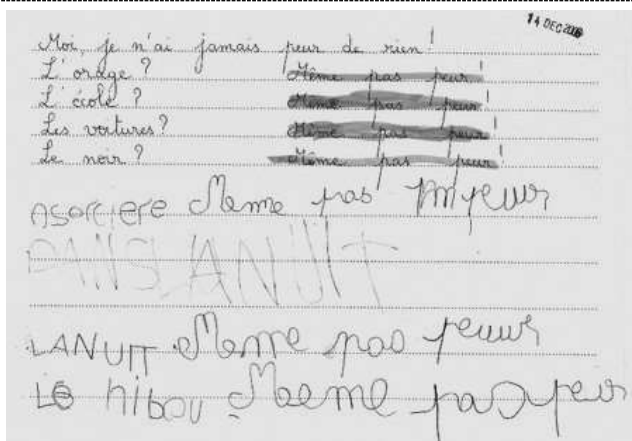 14 DEC 2006
Moi, je n'ai jamais peur de rien !
L'orage ? Même pas peur !
L'école ? Même pas peur !
Les voitures ? Même pas peur !
Le noir ? Même pas peur !
ASORCIERE Meme pas peur
DANS LANUIT
LANUIT Meme pas peuur
LE hibou Moeme pas peur